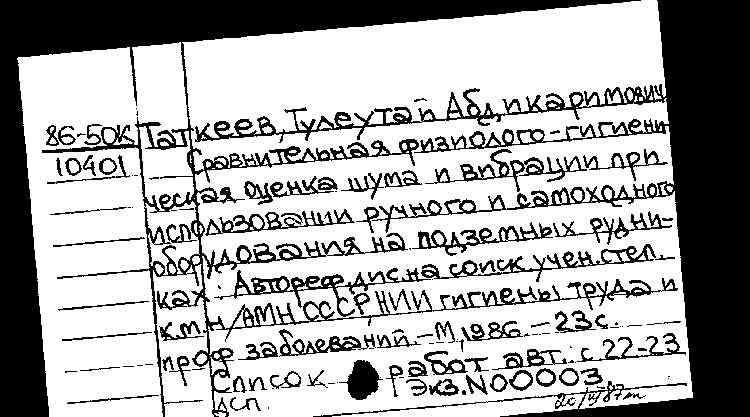 86-50К Таткеев, Тулеутай Абдикаримович
10401 Сравнительная физиолого-гигиени-
ческая оценка шума и вибрации при
использовании ручного и самоходного
оборудования на подземных рудни-
ках: Автореф.дис.на соиск.учен.степ.
к.м.н/АМН СССР,НИИ гигиены труда и
проф заболеваний.-М,1986.-23с.
Список работ авт.: с 22-23
ДСП. Экз.N00003